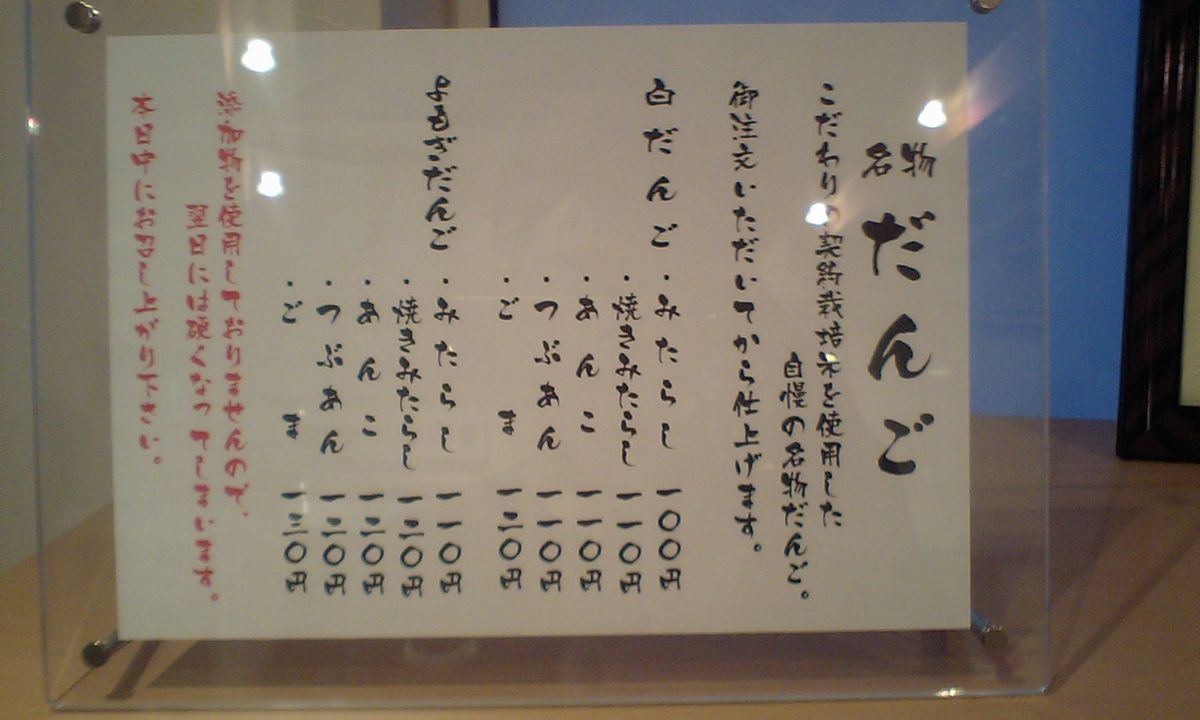 名物
だんご
こだわりの契約栽培米を使用した
自慢の名物だんご。
御注文いただいてから仕上げます。
白だんご
・みたらし 一〇〇円
・焼きみたらし 一一〇円
・あんこ 一一〇円
・つぶあん 一一〇円
・ごま 一二〇円
よもぎだんご
・みたらし 一一〇円
・焼きみたらし 一二〇円
・あんこ 一二〇円
・つぶあん 一二〇円
・ごま 一三〇円
添加物を使用しておりませんので、
翌日には硬くなってしまいます。
本日中にお召し上がり下さい。